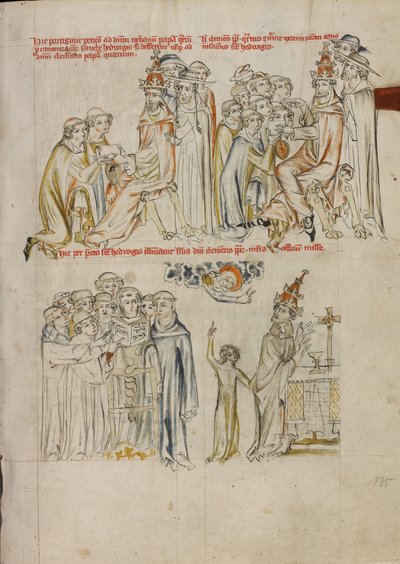 Hic porrigitur peticio ad dominum urbanum papam quartum
pro canonizacione sancte hedwigis et differtur usque ad
dominum clementem papam quartum.
Hic clemens papa quartus
miraculis sancte hedwigis.
Hic per preces sancte hedwigis illuminatur filia domini clementis pape infra officium misse.
135